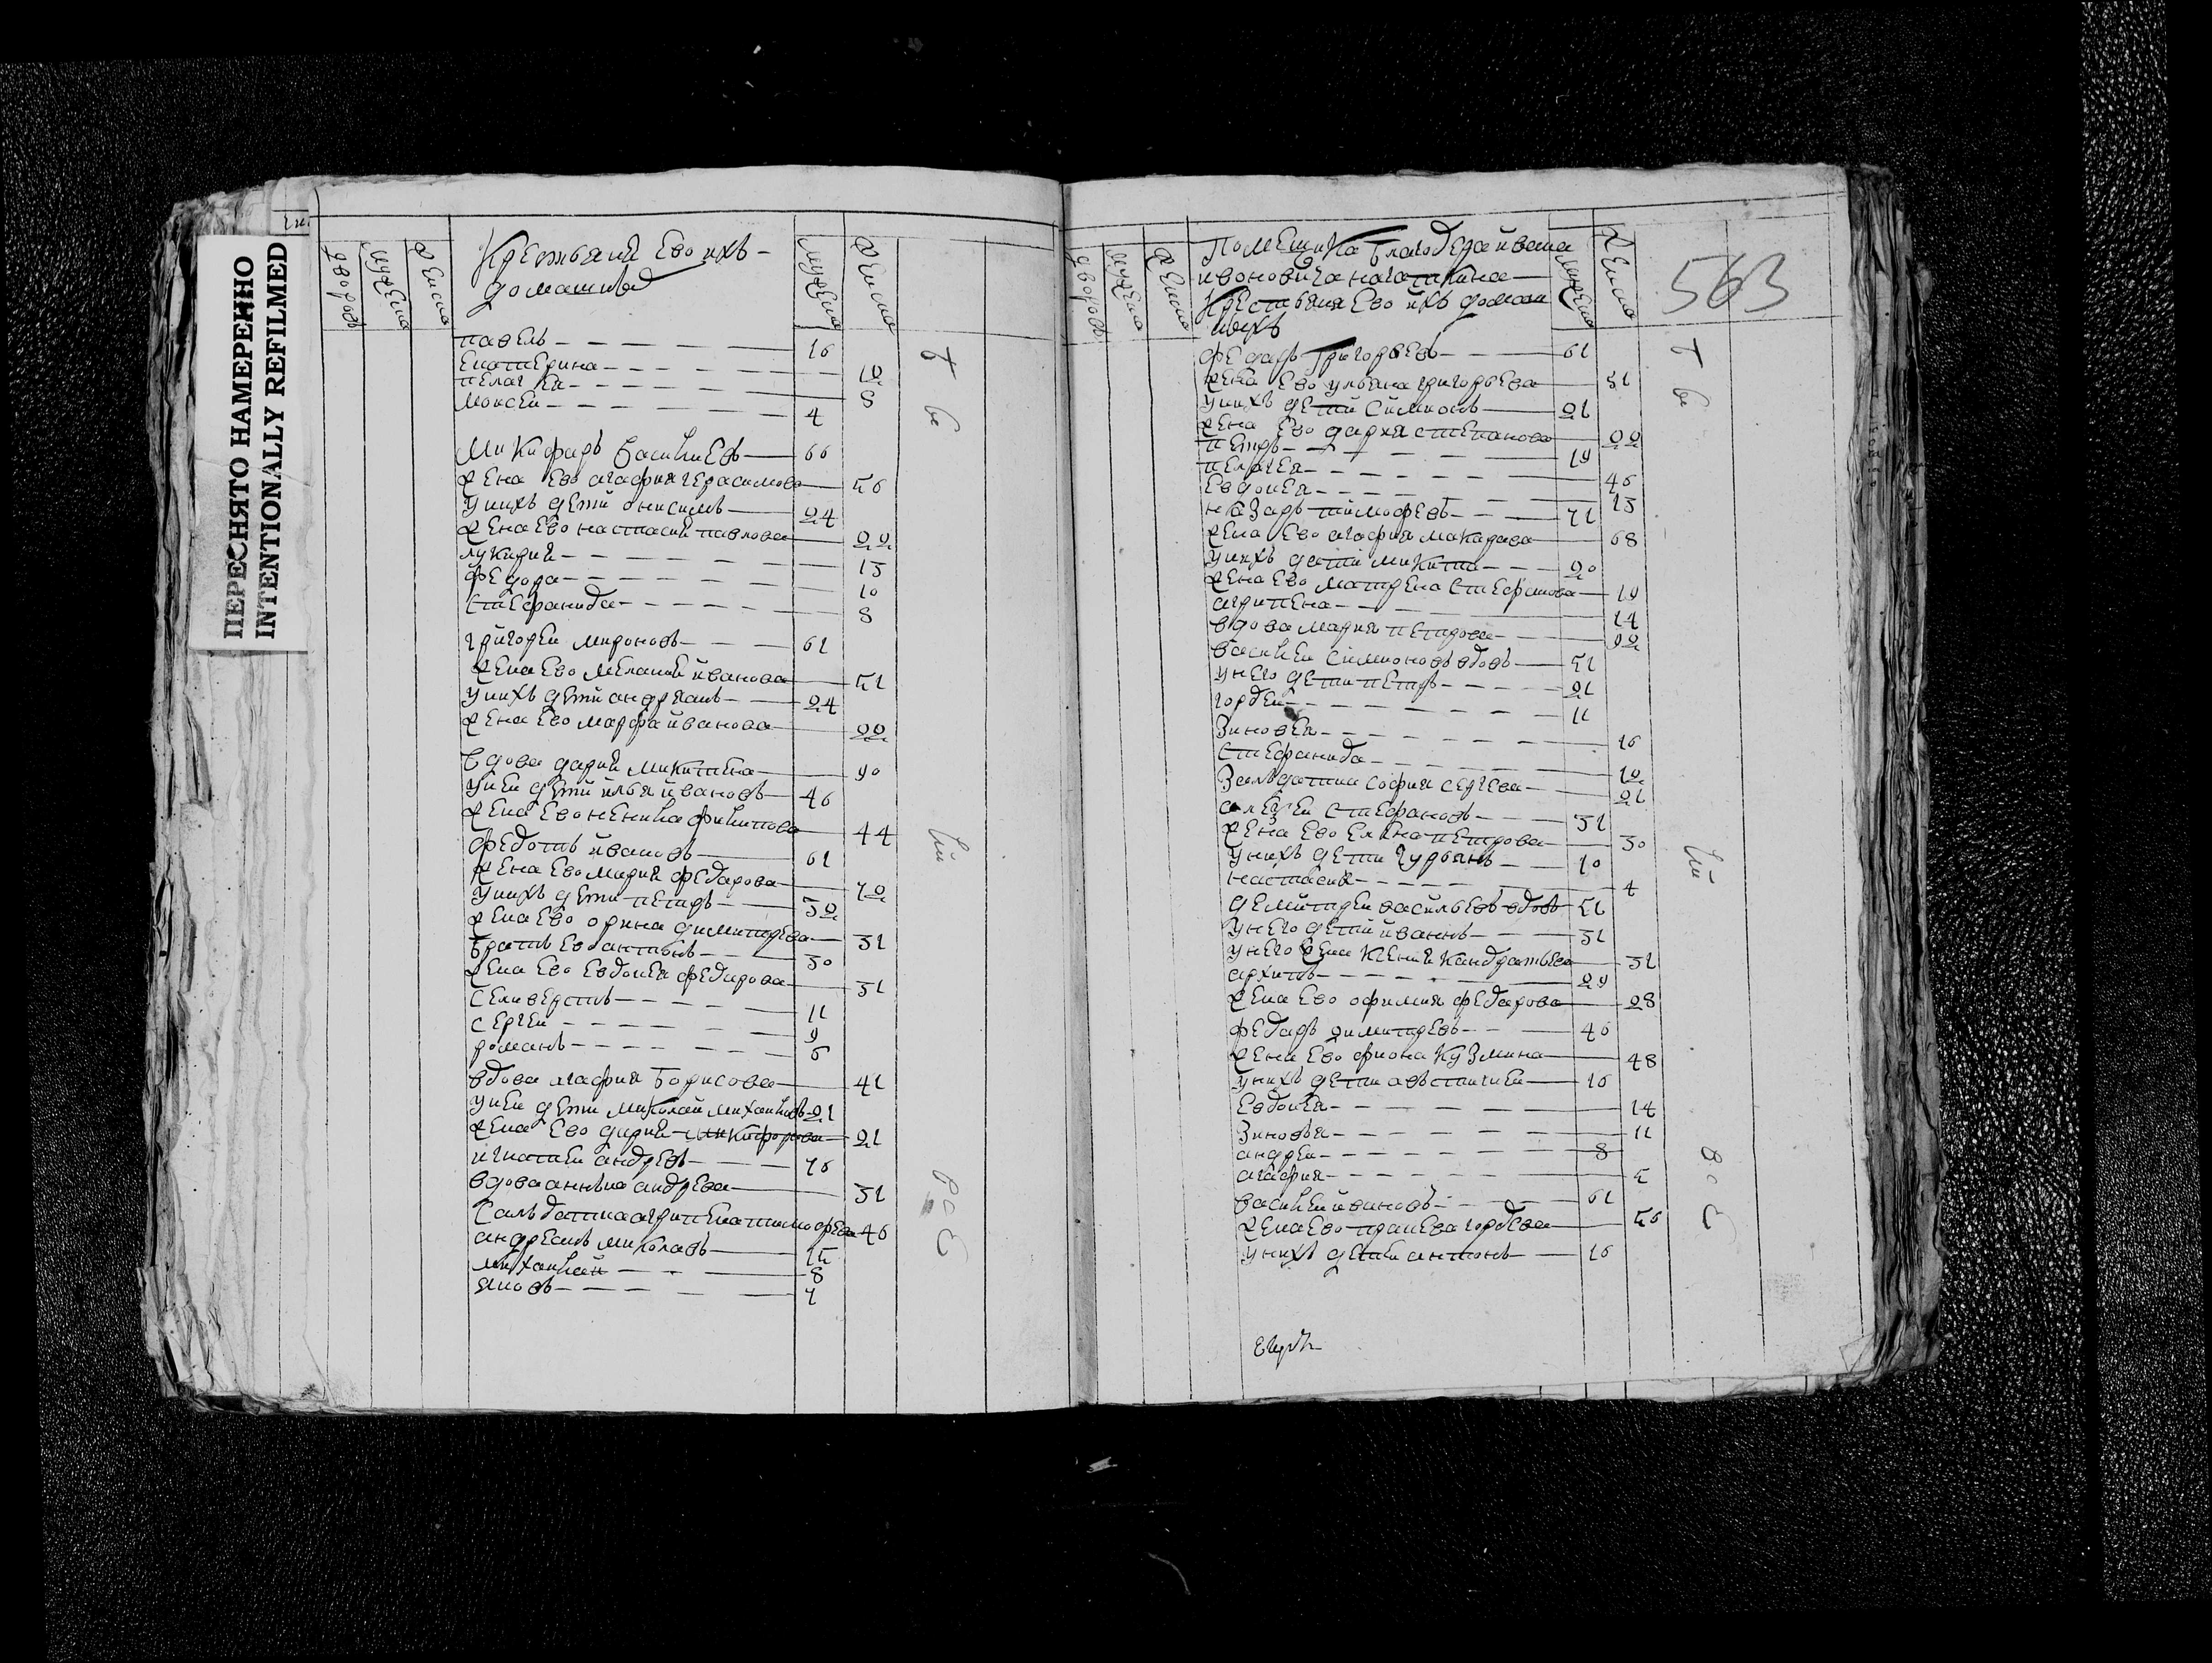 ПЕРЕСНЯТО НАМЕРЕННО
INTENTIONALLY REFILMED
дворовъ
мужеска
женска
Крестьяня ево ихъ
домашные
мужеска
женска
павелъ 16
Екатерина 12
пелагея 8
Моисеи 4
Микифаръ Василиевъ 66
жена ево агафия герасимова 56
у нихъ дети онисимъ 24
жена ево настасия павлова 22
лукирия 13
федора 10
Стефанида 8
григореи мироновъ 61
жена ево мелания иванова 51
у нихъ дети андреянъ 24
жена ево марфа иванова 22
вдова дария микитина 90
у неи дети илья ивановъ 46
жена ево ненила филипова 44
федотъ ивановъ 61
жена ево мария федарова 72
у нихъ дети петръ 32
жена ево орина димитрева 31
братъ ево антонъ 30
жена ево евдокея федарова 31
селиверстъ 11
сергеи 9
романъ 6
вдова агафия борисова 41
у неи дети миколаи михаиловъ 21
жена ево дария микифорова 21
игнатеи андревъ 76
вдова анна андрева 31
салъдатка агрипена тимофева 46
андреянъ миколавъ 15
михаила 8
яковъ 7
т
ве
ли
все
563
дворовъ
мужеска
женска
Помещика благодера ивана
ивановича
Крестьяня ево ихъ домаш
ныхъ
мужеска
женска
федаръ григорьевъ 61
жена ево ульяна григорьева 51
у нихъ дети симионъ 21
жена ево дария степанова 22
петръ 19
пелагея 46
евдокея 13
назаръ тимофевъ 71
жена ево агафия макарава 68
у нихъ дети микита 20
жена ево матрена стефанова 19
агрипена 14
вдова мария петрова 92
василеи симионовъ вдовъ 51
у него дети петръ 21
гордеи 11
Зиновея 16
Стефанида 12
Залъдатка софия сергева 21
алексеи стефановъ 31
жена ево елена петрова 30
у нихъ дети гурьянъ 10
настасия 4
демитреи васильевъ вдовъ 51
у него дети иванъ 31
у него жена ксения кандратьева 31
архипъ 29
жена ево офимия федарова 28
федаръ димитревъ 46
жена ево фиона кузмина 48
у нихъ дети 16
Евдокея 14
Зиновья 11
андреи 8
агафия 5
василеи ивановъ 61
жена ево гордева 56
у нихъ дети антонъ 16
т
ве
ли
все